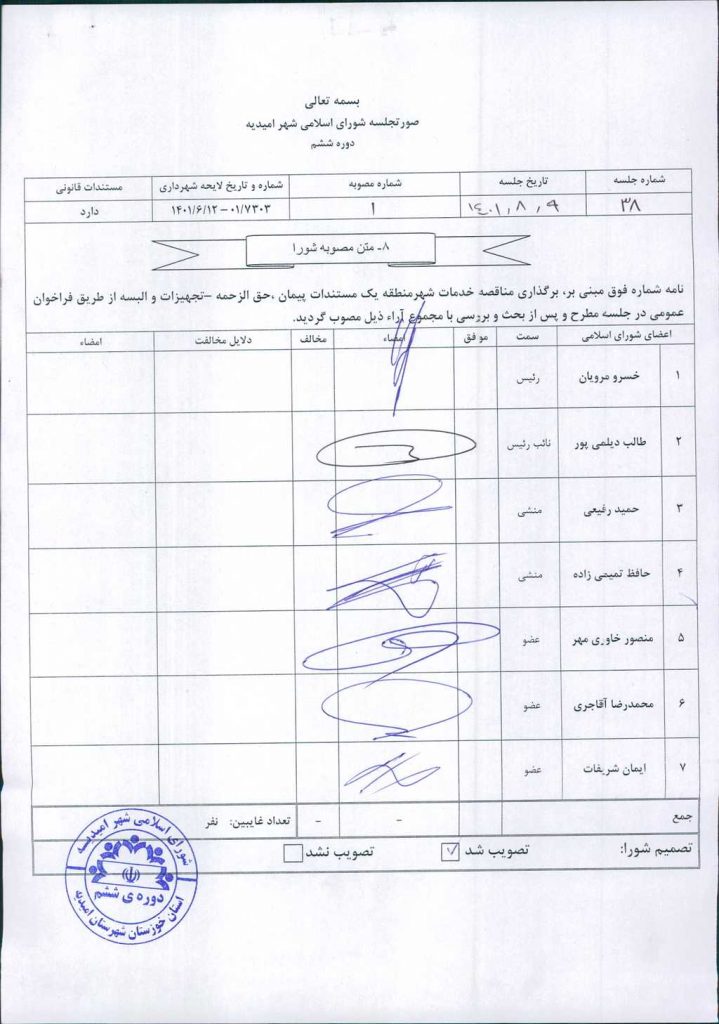 بسمه تعالی
صورتجلسه شورای اسلامی شهر امیدیه
دوره ششم
شماره جلسه تاریخ جلسه شماره مصوبه شماره و تاریخ لایحه شهرداری مستندات قانونی
۳۸ ۱۴۰۱٫۸٫۹ ۱ ۰۱/۷۳۰۳ – ۱۴۰۱/۶/۱۲ دارد
۸- متن مصوبه شورا
نامه شماره فوق مبنی بر، برگذاری مناقصه خدمات شهرمنطقه یک مستندات پیمان ،حق الزحمه –تجهیزات و البسه از طریق فراخوان
عمومی در جلسه مطرح و پس از بحث و بررسی با مجموع آراء ذیل مصوب گردید.
اعضای شورای اسلامی سمت موفق امضاء مخالف دلایل مخالفت امضاء
۱ خسرو مرویان رئیس
۲ طالب دیلمی پور نائب رئیس
۳ حمید رفیعی منشی
۴ حافظ تمیمی زاده منشی
۵ منصور خاوری مهر عضو
۶ محمدرضا آقاجری عضو
۷ ایمان شریفات عضو
جمع - - تعداد غایبین: نفر
تصمیم شورا: تصویب شد تصویب نشد
شورای اسلامی شهر امیدیه
دوره ی ششم
استان خوزستان شهرستان امیدیه